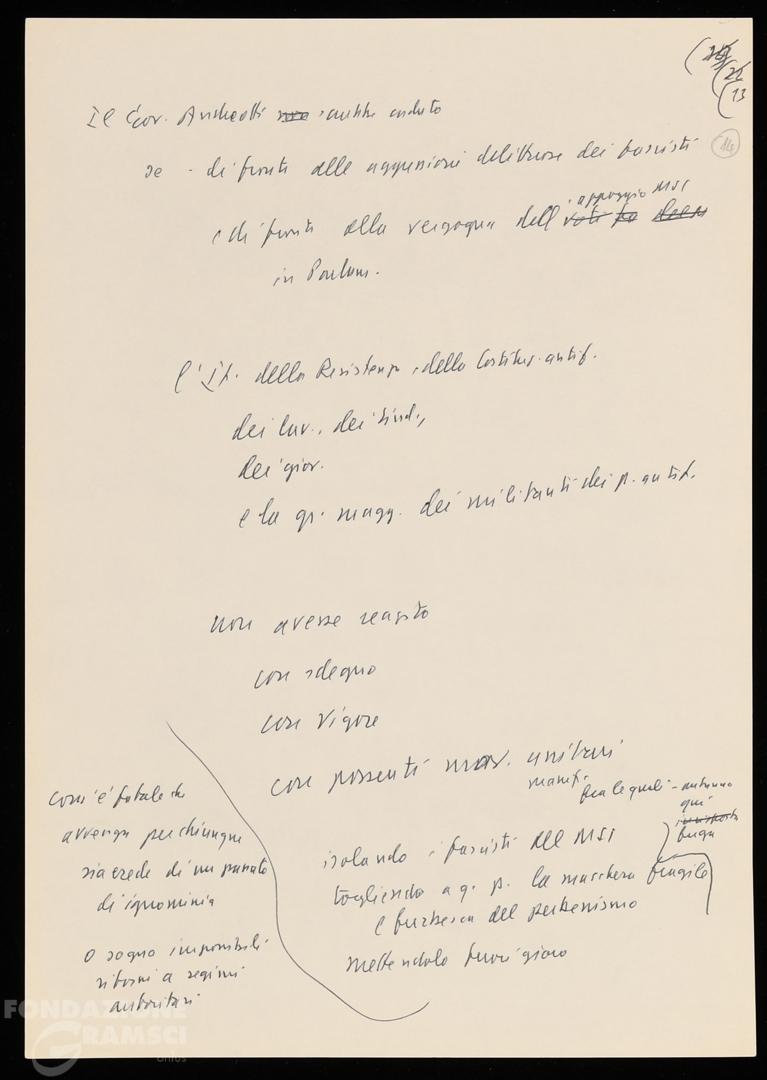 (22
(13
14
Il Gov. Andreotti sarebbe caduto
se - di fronte alle aggressioni delittuose dei fascisti
e di fronte alla vergogna dell'appoggio MSI
in Parlam.
l'It. della Resistenza, della Costituz. antif.
dei lav., dei sind.,
dei giov.
e la gr. magg. dei militanti dei p. antif.
non avesse reagito
con sdegno
con vigore
con possenti manif. unitari
fra le quali - autunno
qui
fuga
isolando i fascisti del MSI
togliendo a q. p. la maschera fragile
e furbesca del perbenismo
mettendolo fuori gioco
com'è fatale che
avvenga per chiunque
sia erede di un passato
di ignominia
o sogna impossibili
ritorni a regimi
autoritari
FONDAZIONE
GRAMSCI
onlus